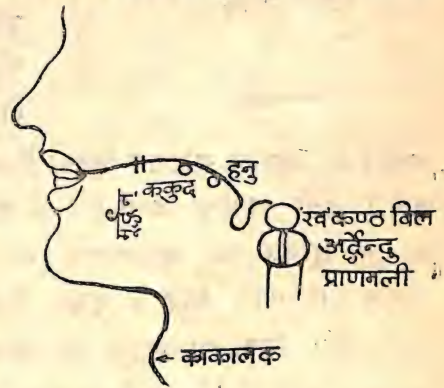 हनु
ककुद
'ख'कण्ठ बिल
अर्द्धेन्दु
प्राणनली
काकालक